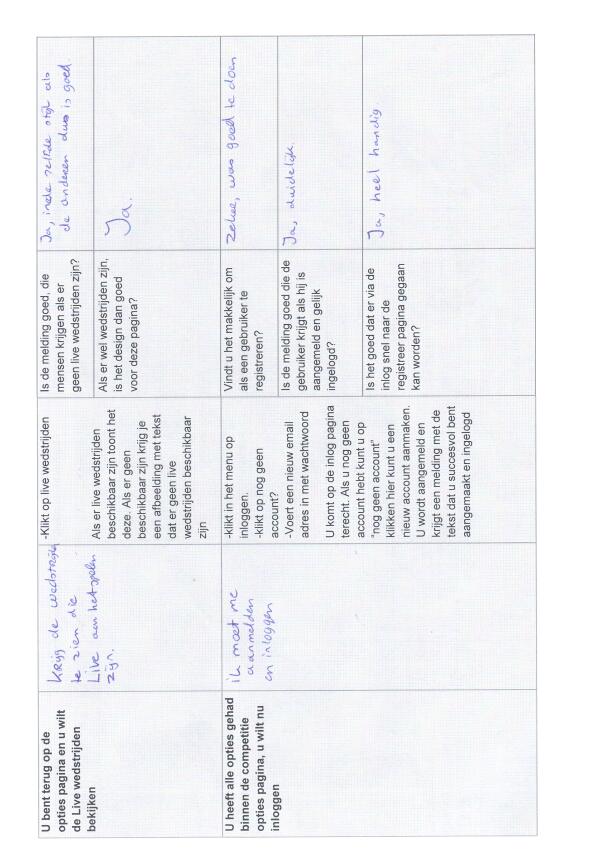 U bent terug op de
opties pagina en u wilt
de Live wedstrijden
bekijken
Krijg de wedstrijden
te zien die
Live aan het spelen
zijn.
-Klikt op live wedstrijden
Als er live wedstrijden
beschikbaar zijn toont het
deze. Als er geen
beschikbaar zijn krijg je
een afbeelding met tekst
dat er geen live
wedstrijden beschikbaar
zijn
Is de melding goed, die
mensen krijgen als er
geen live wedstrijden zijn?
Ja, in de zelfde stijl als
de anderen dus is goed
Als er wel wedstrijden zijn,
is het design dan goed
voor deze pagina?
Ja.
U heeft alle opties gehad
binnen de competitie
opties pagina, u wilt nu
inloggen
ik moet me
aanmelden
en inloggen
-klikt in het menu op
inloggen.
-klikt op nog geen
account?
-Voert een nieuw email
adres in met wachtwoord
U komt op de inlog pagina
terecht. Als u nog geen
account hebt kunt u op
"nog geen account"
klikken hier kunt u een
nieuw account aanmaken.
U wordt aangemeld en
krijgt een melding met de
tekst dat u succesvol bent
aangemaakt en ingelogd
Vindt u het makkelijk om
als een gebruiker te
registreren?
Zeker, was goed te doen
Is de melding goed die de
gebruiker krijgt als hij is
aangemeld en gelijk
ingelogd?
Ja, duidelijk.
Is het goed dat er via de
inlog snel naar de
registreer pagina gegaan
kan worden?
Ja, heel handig